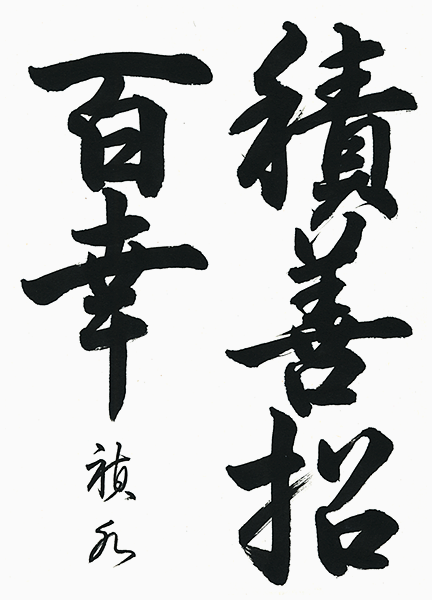 積善招
百幸
禎水